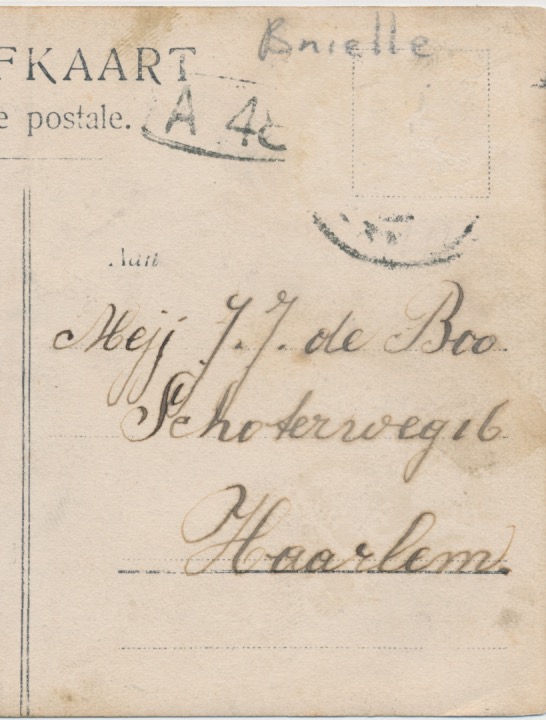 Brielle
FKAART
e postale.
A 4
Aan
Mejj J. J. de Boo
Schoterweg 16
Haarlem.